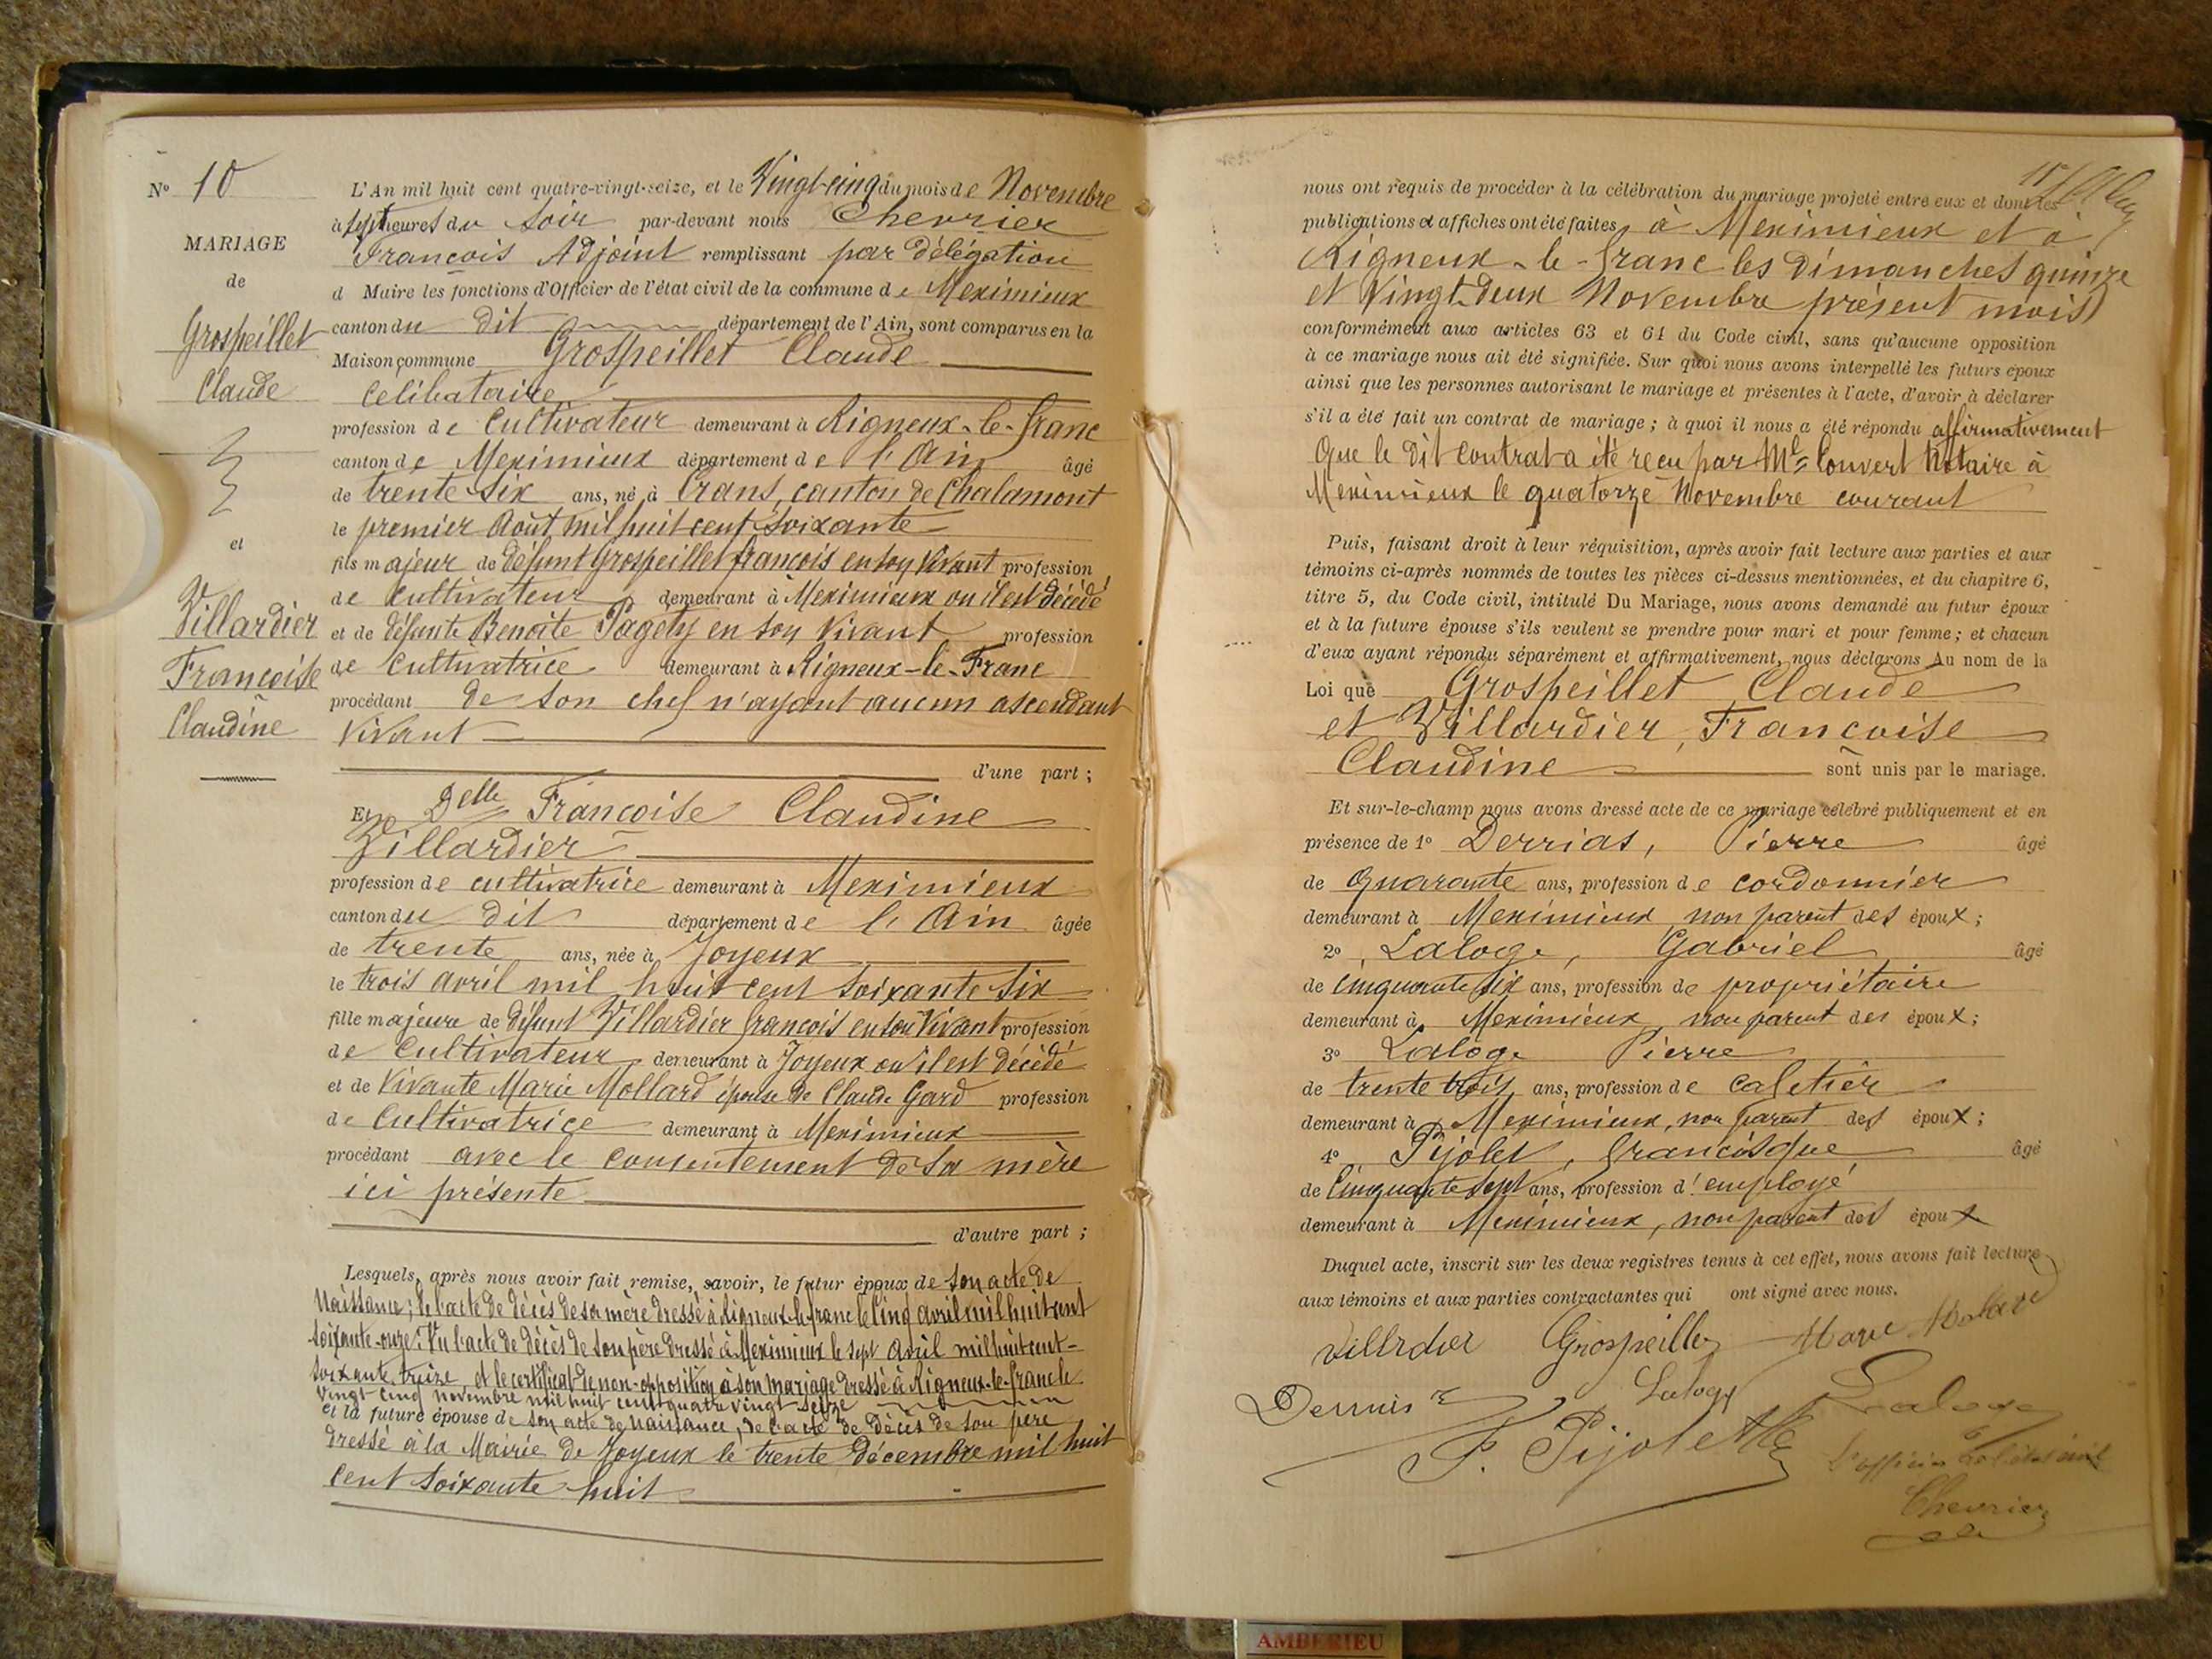 No 10
MARIAGE
de
Grospeillet
Claude
et
Villardier
Françoise
Claudine
L'An mil huit cent quatre-vingt-seize, et le Vingt-cinq du mois de Novembre
à sept heures du soir par-devant nous Chevrier
François Adjoint remplissant par délégation
d Maire les fonctions d'Officier de l'état civil de la commune de Meximieux
canton du dit département de l'Ain, sont comparus en la
Maison commune Grospeillet Claude
Celibataire
profession de Cultivateur demeurant à Rigneux-le-franc
canton de Meximieux département de l'Ain âgé
de trente six ans, né à Crans, canton de Chalamont
le premier Août mil huit cent soixante
fils majeur de défunt Grospeillet françois en son vivant profession
de cultivateur demeurant à Meximieux ou il est décédé
et de défunte Benoite Pagety en son vivant profession
de Cultivatrice demeurant à Rigneux-le-Franc
procédant de son chef n'ayant aucun ascendant
vivant
d'une part ;
Et Delle Françoise Claudine
Villardier
profession de cultivatrice demeurant à Meximieux
canton du dit département de l'Ain âgée
de trente ans, née à Joyeux
le trois avril mil huit cent soixante six
fille majeure de défunt Villardier françois en son vivant profession
de Cultivateur demeurant à Joyeux ou il est décédé
et de vivante Marie Mollard épouse de Claude Gard profession
de Cultivatrice demeurant à Meximieux
procédant avec le consentement de sa mère
ici présente
d'autre part ;
Lesquels, après nous avoir fait remise, savoir, le futur époux de son acte de
Naissance; de l'acte de décès de sa mère dressé à Rigneux-le-franc le cinq avril mil huit cent
soixante-onze; Vu l'acte de décès de son père dressé à Meximieux le sept avril mil huit cent-
soixante treize, et le certificat de non-opposition a son mariage dressé à Rigneux-le-franc le
vingt cinq novembre mil huit cent quatre vingt seize
et la future épouse de son acte de naissance, de l'acte de décès de son père
dressé à la Mairie de Joyeux le trente décembre mil huit
cent soixante huit
nous ont requis de procéder à la célébration du mariage projeté entre eux et dont les
publications et affiches ont été faites, à Meximieux et à
Rigneux-le-franc les dimanches quinze
et vingt-deux Novembre présent mois
conformément aux articles 63 et 64 du Code civil, sans qu'aucune opposition
à ce mariage nous ait été signifiée. Sur quoi nous avons interpellé les futurs époux
ainsi que les personnes autorisant le mariage et présentes à l'acte, d'avoir à déclarer
s'il a été fait un contrat de mariage ; à quoi il nous a été répondu affirmativement
Que le dit contrat a été reçu par Me Convert Notaire à
Meximieux le quatorze Novembre courant
Puis, faisant droit à leur réquisition, après avoir fait lecture aux parties et aux
témoins ci-après nommés de toutes les pièces ci-dessus mentionnées, et du chapitre 6,
titre 5, du Code civil, intitulé Du Mariage, nous avons demandé au futur époux
et à la future épouse s'ils veulent se prendre pour mari et pour femme ; et chacun
d'eux ayant répondu séparément et affirmativement, nous déclarons Au nom de la
Loi que Grospeillet Claude
et Villardier, Françoise
Claudine sont unis par le mariage.
Et sur-le-champ nous avons dressé acte de ce mariage célébré publiquement et en
présence de 1o Derrias, Pierre âgé
de Quarante ans, profession de cordonnier
demeurant à Meximieux, non parent des époux ;
2o Laloge, Gabriel âgé
de cinquante six ans, profession de propriétaire
demeurant à Meximieux, non parent des époux ;
3o Laloge Pierre
de trente trois ans, profession de cafetier
demeurant à Meximieux, non parent des époux ;
4o Pijolet, francisque âgé
de Cinquante sept ans, profession d'employé
demeurant à Meximieux, non parent des époux
Duquel acte, inscrit sur les deux registres tenus à cet effet, nous avons fait lecture
aux témoins et aux parties contractantes qui ont signé avec nous.
villrdier Grospeillet Marie Molard
Laloge Laloge
F. Pijolet
L'officier de l'état civil
Chevrier
AMBERIEU